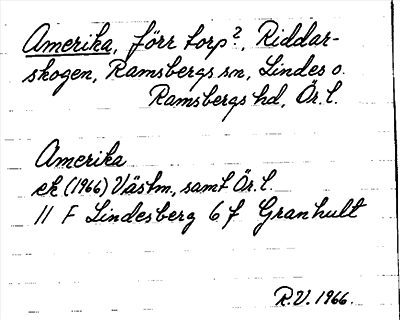 Amerika, förr torp?, Riddar-
skogen, Ramsbergs sn, Lindes o.
Ramsbergs hd, Ör. l.
Amerika
ek (1966) Västm., samt Ör. l.
11 F Lindesberg 6 f Granhult
R.V. 1966.